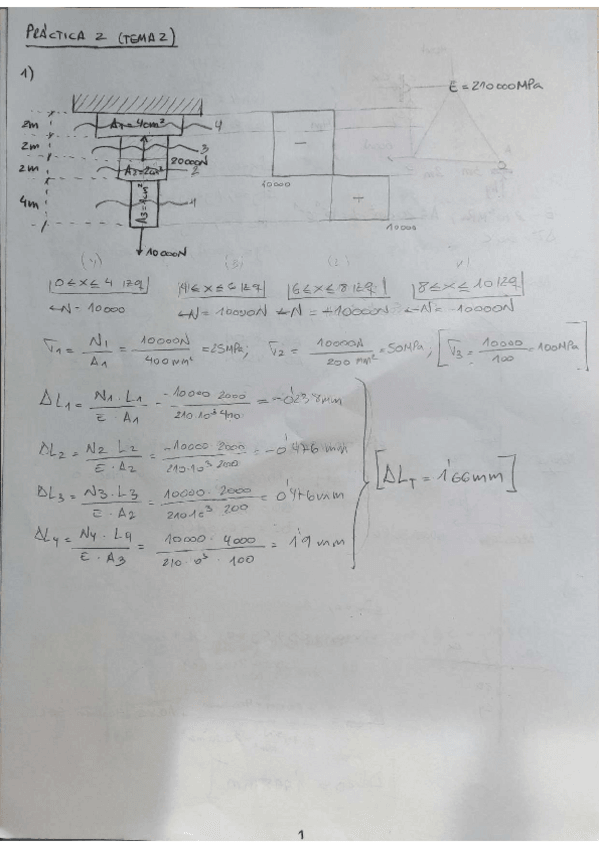 PRÁCTICA 2 (TEMA 2)
1)
E = 210000MPa
2m
A1=4cm²
4
2m
3
20000N
2m
A2=2cm²
2
4m
A3=1cm²
1
10000N
10000
10000
−
+
|0≤x≤4 izq| |4≤x≤6 izq| |6≤x≤8 izq| |8≤x≤10 izq|
N= 10000 N= 10000N N= -10000N N= -10000N
σ1 = N1/A1 = 10000N/400mm² = 25MPa; σ2 = 10000N/200 mm² = 50MPa; [σ3 = 10000/100 = 100MPa]
ΔL1 = N1·L1/E·A1 = -10000·2000/210·10³·400 = -0'238mm
ΔL2 = N2·L2/E·A2 = -10000·2000/210·10³·200 = -0'476 mm
ΔL3 = N3·L3/E·A2 = 10000·2000/210·10³·200 = 0'476mm
[ΔLT = 1'66mm]
ΔL4 = N4·L4/E·A3 = 10000·4000/210·10³·100 = 1'9 mm
1